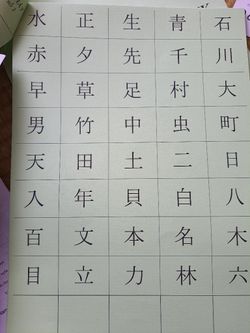 水 正 生 青 石
赤 夕 先 千 川
早 草 足 村 大
男 竹 中 虫 町
天 田 土 二 日
入 年 貝 白 八
百 文 本 名 木
目 立 力 林 六